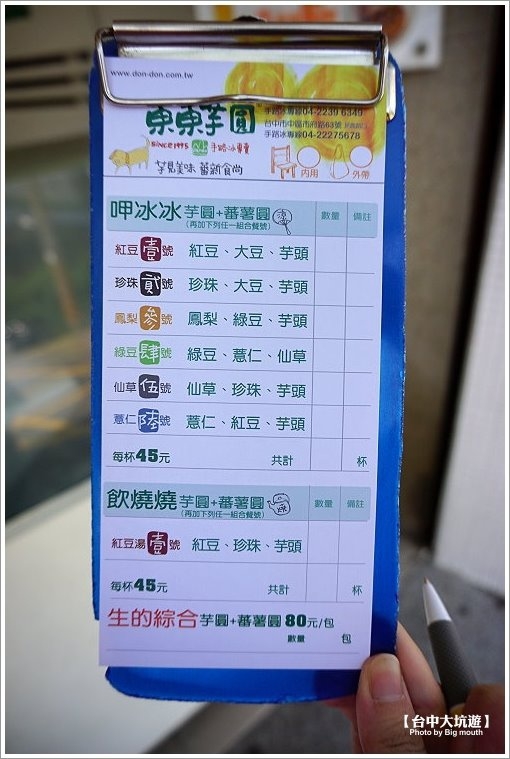 www.don-don.com.tw
東東芋圓
SINCE 1995 手路冰專賣
芋見美味 蕃新食尚
手路冰專線04-2239 6349
台中市中區市府路63號
手路冰專線04-22275678
內用 外帶
呷冰冰 芋圓+蕃薯圓 數量 備註
(再加下列任一組合餐號)
紅豆壹號 紅豆、大豆、芋頭
珍珠貳號 珍珠、大豆、芋頭
鳳梨參號 鳳梨、綠豆、芋頭
綠豆肆號 綠豆、薏仁、仙草
仙草伍號 仙草、珍珠、芋頭
薏仁陸號 薏仁、紅豆、芋頭
每杯45元 共計 杯
飲燒燒 芋圓+蕃薯圓 數量 備註
(再加下列任一組合餐號)
紅豆湯壹號 紅豆、珍珠、芋頭
每杯45元 共計 杯
生的綜合芋圓+蕃薯圓 80元/包
數量 包
【台中大坑遊】
Photo by Big mouth